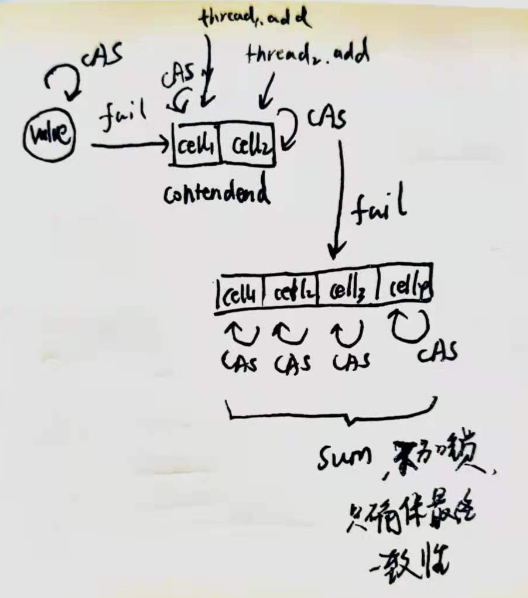 thread1.add
CAS
thread2.add
CAS
fail
value
cell1 cell2
CAS
contendend
fail
cell1 cell2 cell3 cell4
CAS CAS CAS CAS
sum,不加锁,
只确保最终
一致性